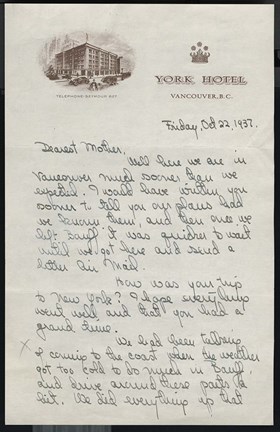 YORK HOTEL
VANCOUVER, B.C.
TELEPHONE SEYMOUR
Friday, Oct 22, 1937.
Dearest Mother,
Well here we are in
Vancouver much sooner than we
expected. I would have written you
sooner to tell you our plans had
we known them, and then once we
left Banff it was quicker to wait
until we got here and send a
letter Air Mail.
How was your trip
to New York? I hope everything
went well and that you had a
grand time.
We had been talking
of coming to the coast when the weather
got too cold to do much in Banff,
and drive around these parts a
bit. We did everything up that